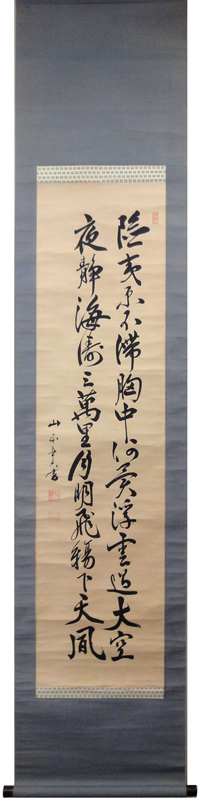 険夷原不滞胸中何異浮雲過大空
夜静海濤三萬里月明飛錫下天風
山
書